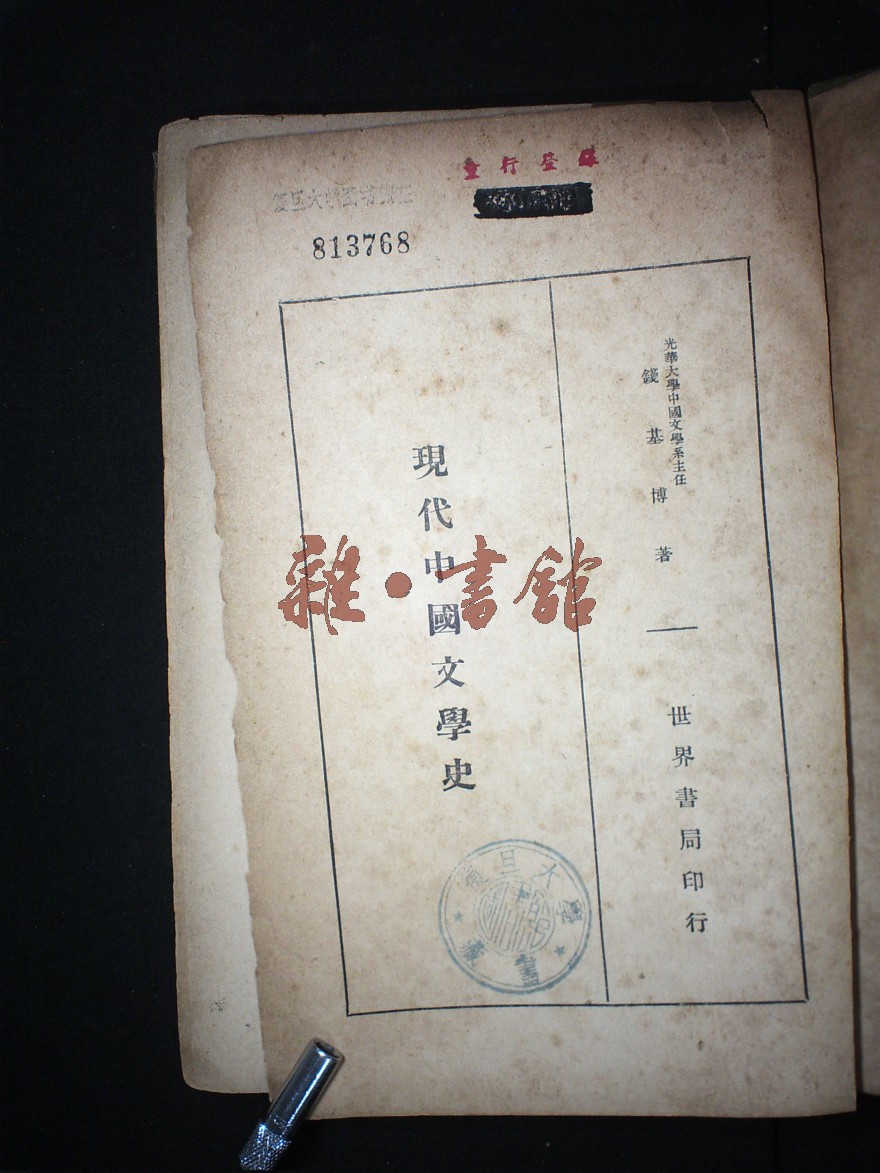 重行登錄
813768
光華大學中國文學系主任
錢基博著
世界書局印行
現代中國文學史
雜·書館
復旦大學
藏書